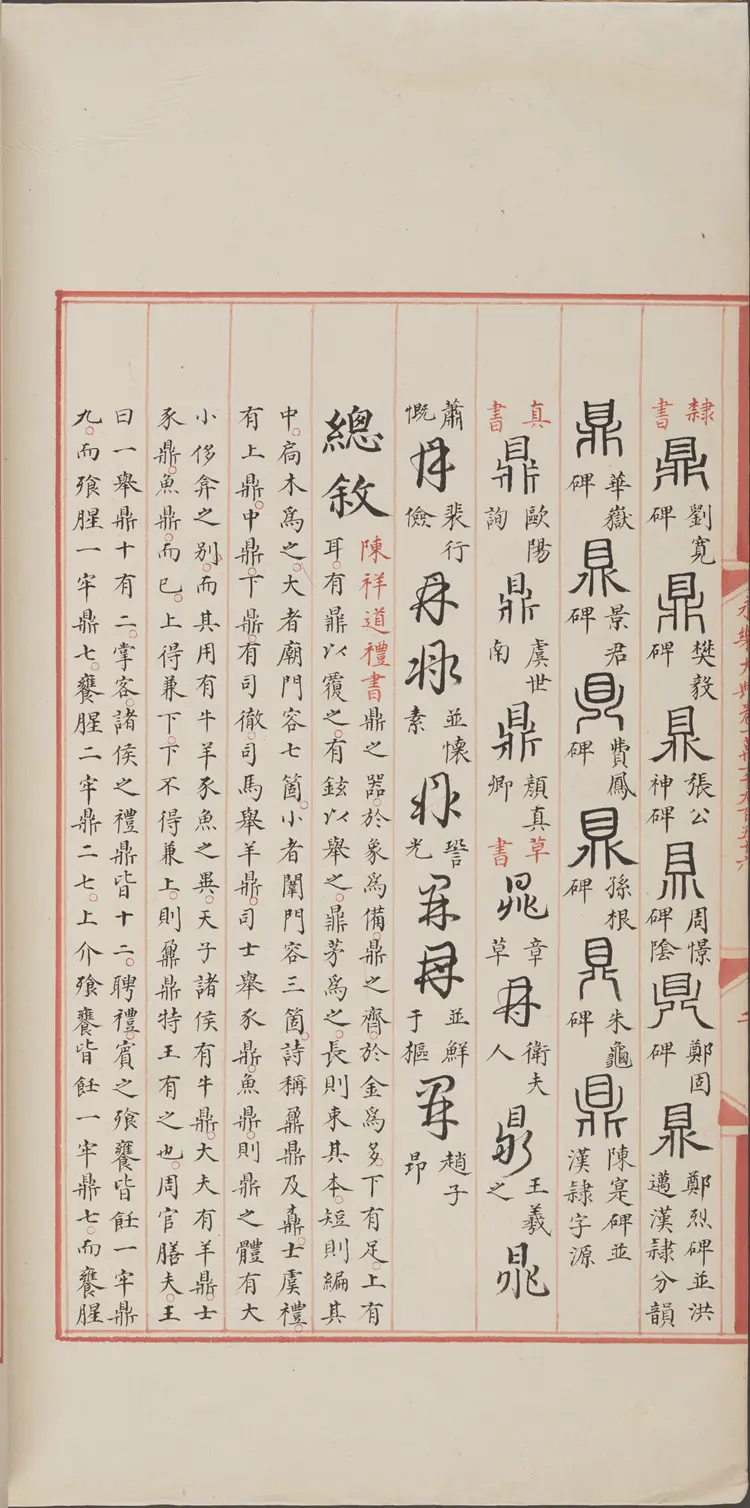 永樂大典卷一萬一千九百五十六 二
隸書 鼎 劉寬碑 鼎 樊毅碑 鼎 張公神碑 鼎 周憬碑陰 鼎 鄭固碑 鼎 鄭烈碑並洪邁漢隸分韻
鼎 華嶽碑 鼎 景君碑 鼎 費鳳碑 鼎 孫根碑 鼎 朱龜碑 鼎 陳寔碑並漢隸字源
真書 鼎 歐陽詢 鼎 虞世南 鼎 顏真卿 草書 鼎 章草 鼎 衛夫人 鼎 王羲之 鼎
蕭慨 鼎 裴行儉 鼎 鼎 並懷素 鼎 䛒光 鼎 鼎 並鮮于樞 鼎 趙子昂
總敘 陳祥道禮書 鼎之器。於象爲備。鼎之齊。於金爲多。下有足。上有
耳。有鼏以覆之。有鉉以舉之。鼏茅爲之。長則束其本。短則編其
中。扃木爲之。大者廟門容七箇。小者闈門容三箇。詩稱鼐鼎及鼒。士虞禮。
有上鼎。中鼎。下鼎。有司徹。司馬舉羊鼎。司士舉豕鼎。魚鼎。則鼎之體有大
小侈弇之別。而其用有牛羊豕魚之異。天子諸侯有牛鼎。大夫有羊鼎。士
豕鼎。魚鼎。而已。上得兼下。下不得兼上。則鼐鼎特王有之也。周官膳夫。王
曰一舉鼎十有二。掌客。諸侯之禮鼎皆十二。聘禮。賓之飧饔皆飪一牢鼎
九。而飧腥一牢鼎七。饔腥二牢鼎二七。上介飧饔皆飪一牢鼎七。而饔腥